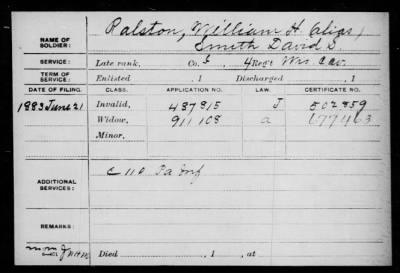 NAME OF SOLDIER: Ralston, William H. (alias)
Smith David D.
SERVICE: Late rank, Co. 4 Regt Wis. Cav.
TERM OF SERVICE: Enlisted , 1 Discharged , 1
DATE OF FILING. CLASS. APPLICATION NO. LAW. CERTIFICATE NO.
1883 June 21 Invalid, 487815 J 502859
Widow, 911108 a 677463
Minor,
ADDITIONAL SERVICES: C 110 Pa Inf
REMARKS:
Died , 1 , at